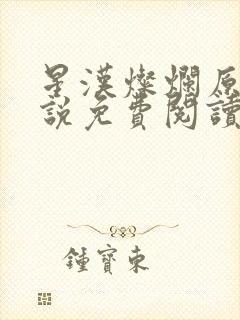 星漢燦爛原
說免費閱讀
鍾寶東